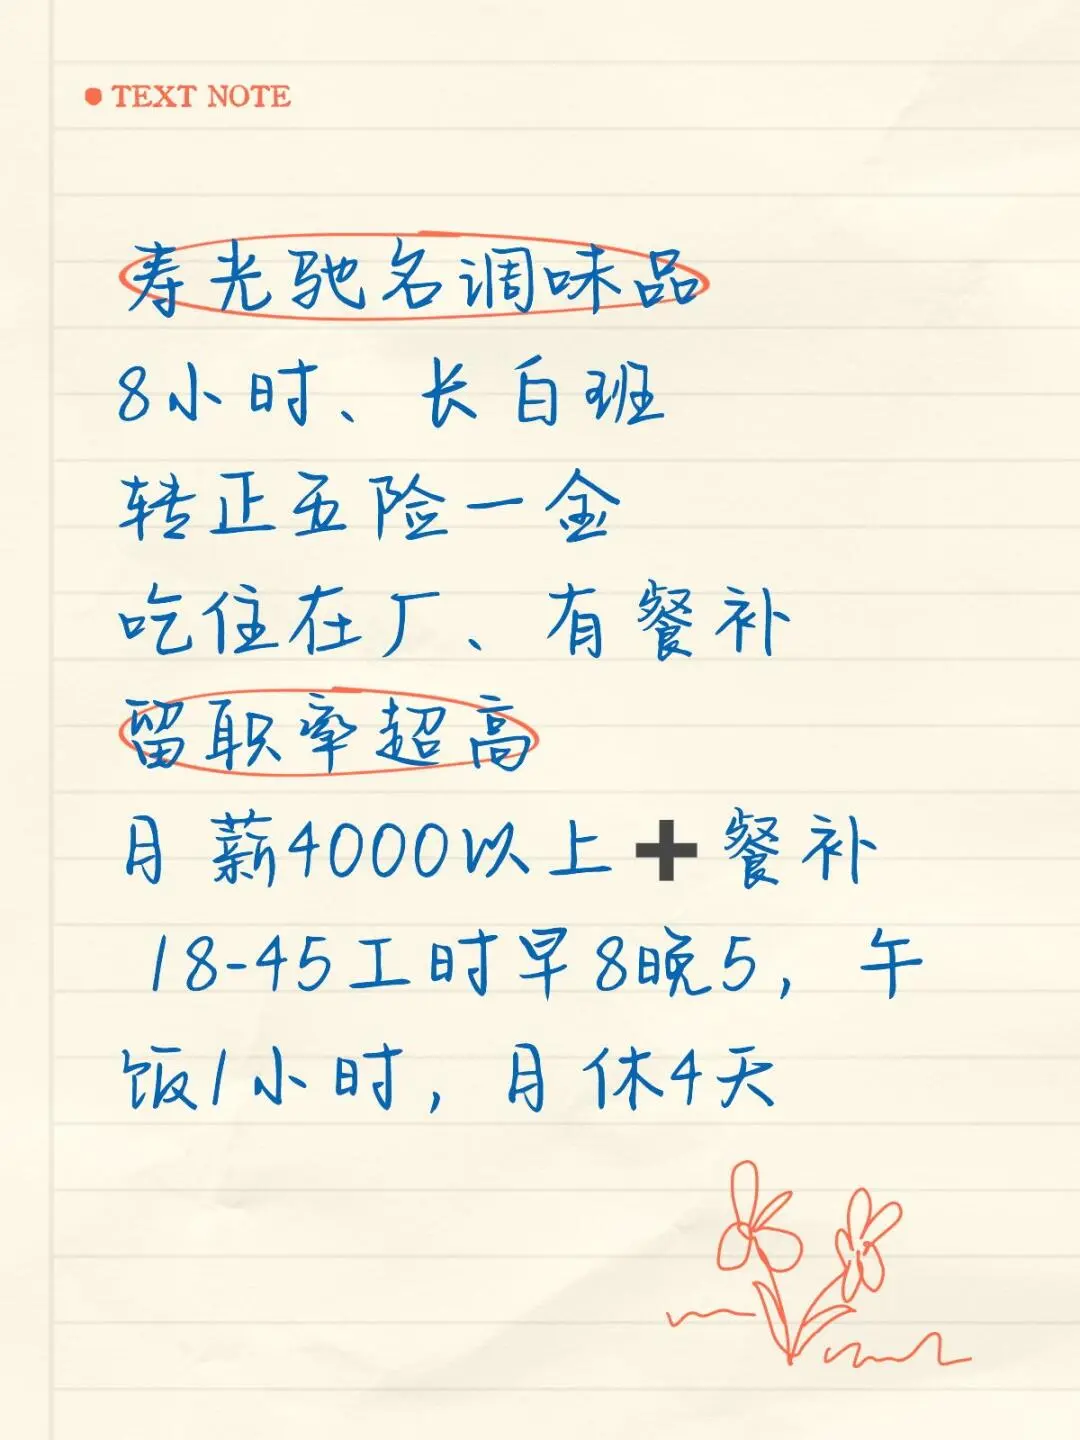 TEXT NOTE
寿光驰名调味品
8小时、长白班
转正五险一金
吃住在厂、有餐补
留职率超高
月薪4000以上➕餐补
18-45工时早8晚5，午
饭1小时，月休4天